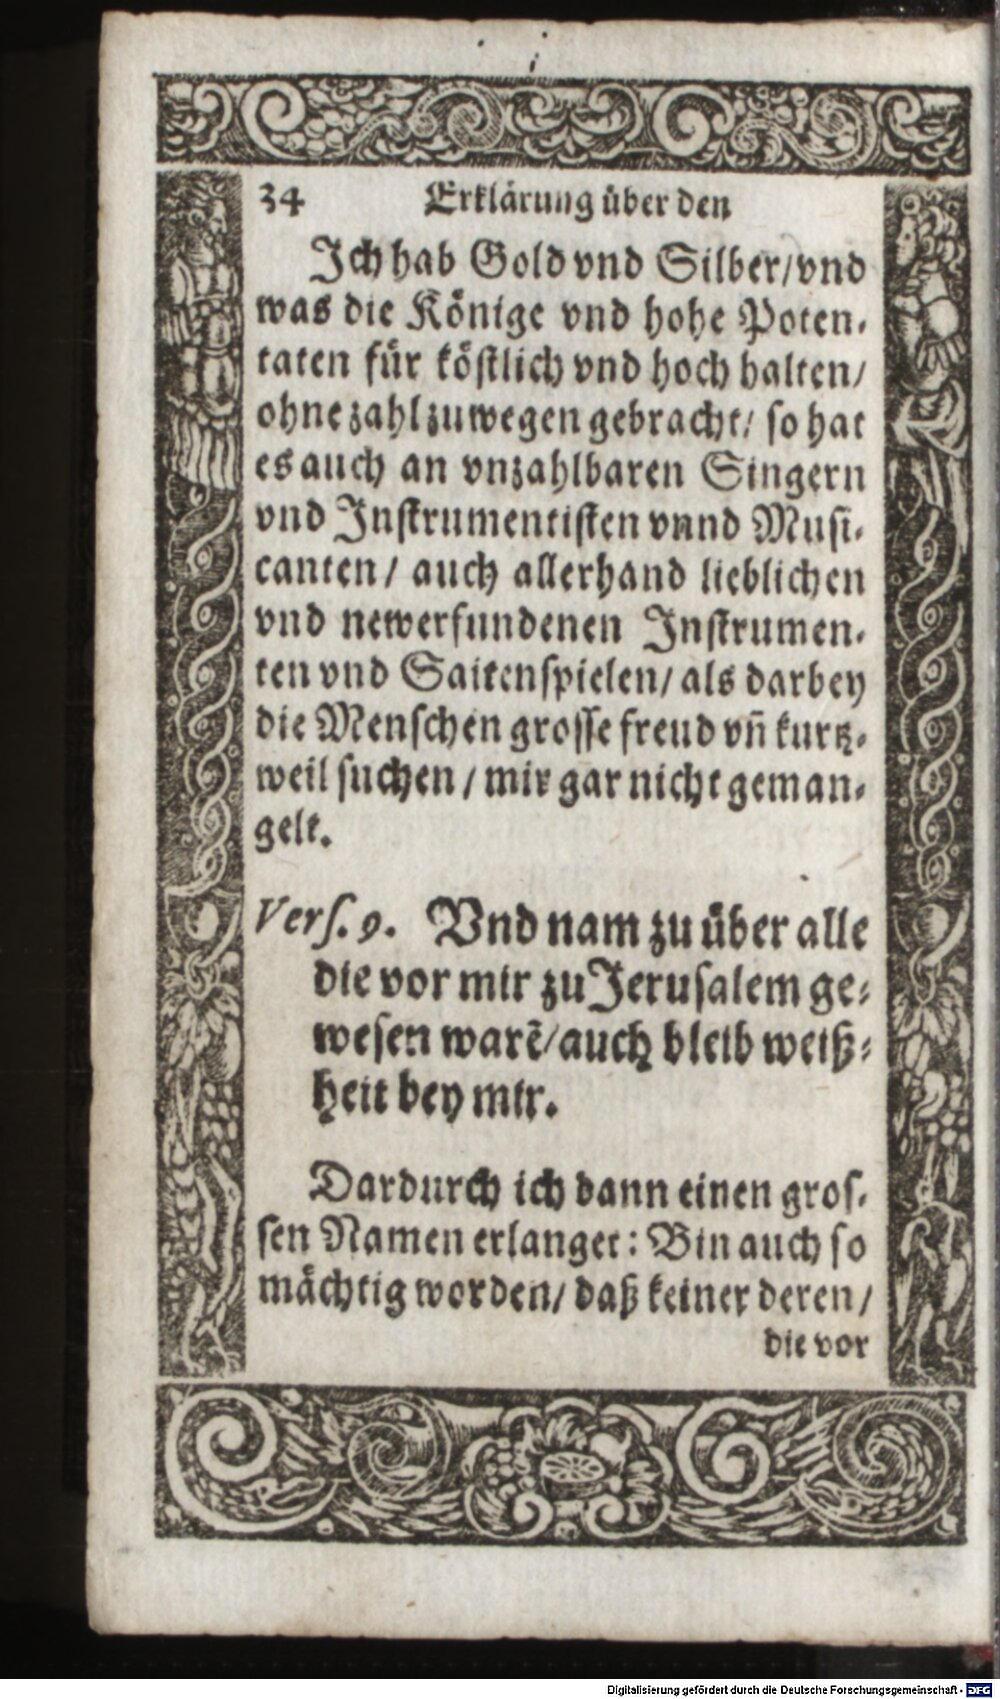 34 Erklärung über den
Ich hab Gold vnd Silber/vnd
was die Könige vnd hohe Poten-
taten für köstlich vnd hoch halten/
ohne zahl zuwegen gebracht/ so hat
es auch an vnzahlbaren Singern
vnd Instrumentisten vnnd Musi-
canten/ auch allerhand lieblichen
vnd newerfundenen Instrumen-
ten vnd Saitenspielen/ als darbey
die Menschen grosse freud vñ kurtz-
weil suchen/ mir gar nicht geman-
gelt.
Vers. 9. Vnd nam zu über alle
die vor mir zu Jerusalem ge-
wesen warẽ/auch bleib weiß-
heit bey mir.
Dardurch ich dann einen gros-
sen Namen erlanget: Bin auch so
mächtig worden/ daß keiner deren/
die vor
Digitalisierung gefördert durch die Deutsche Forschungsgemeinschaft - DFG